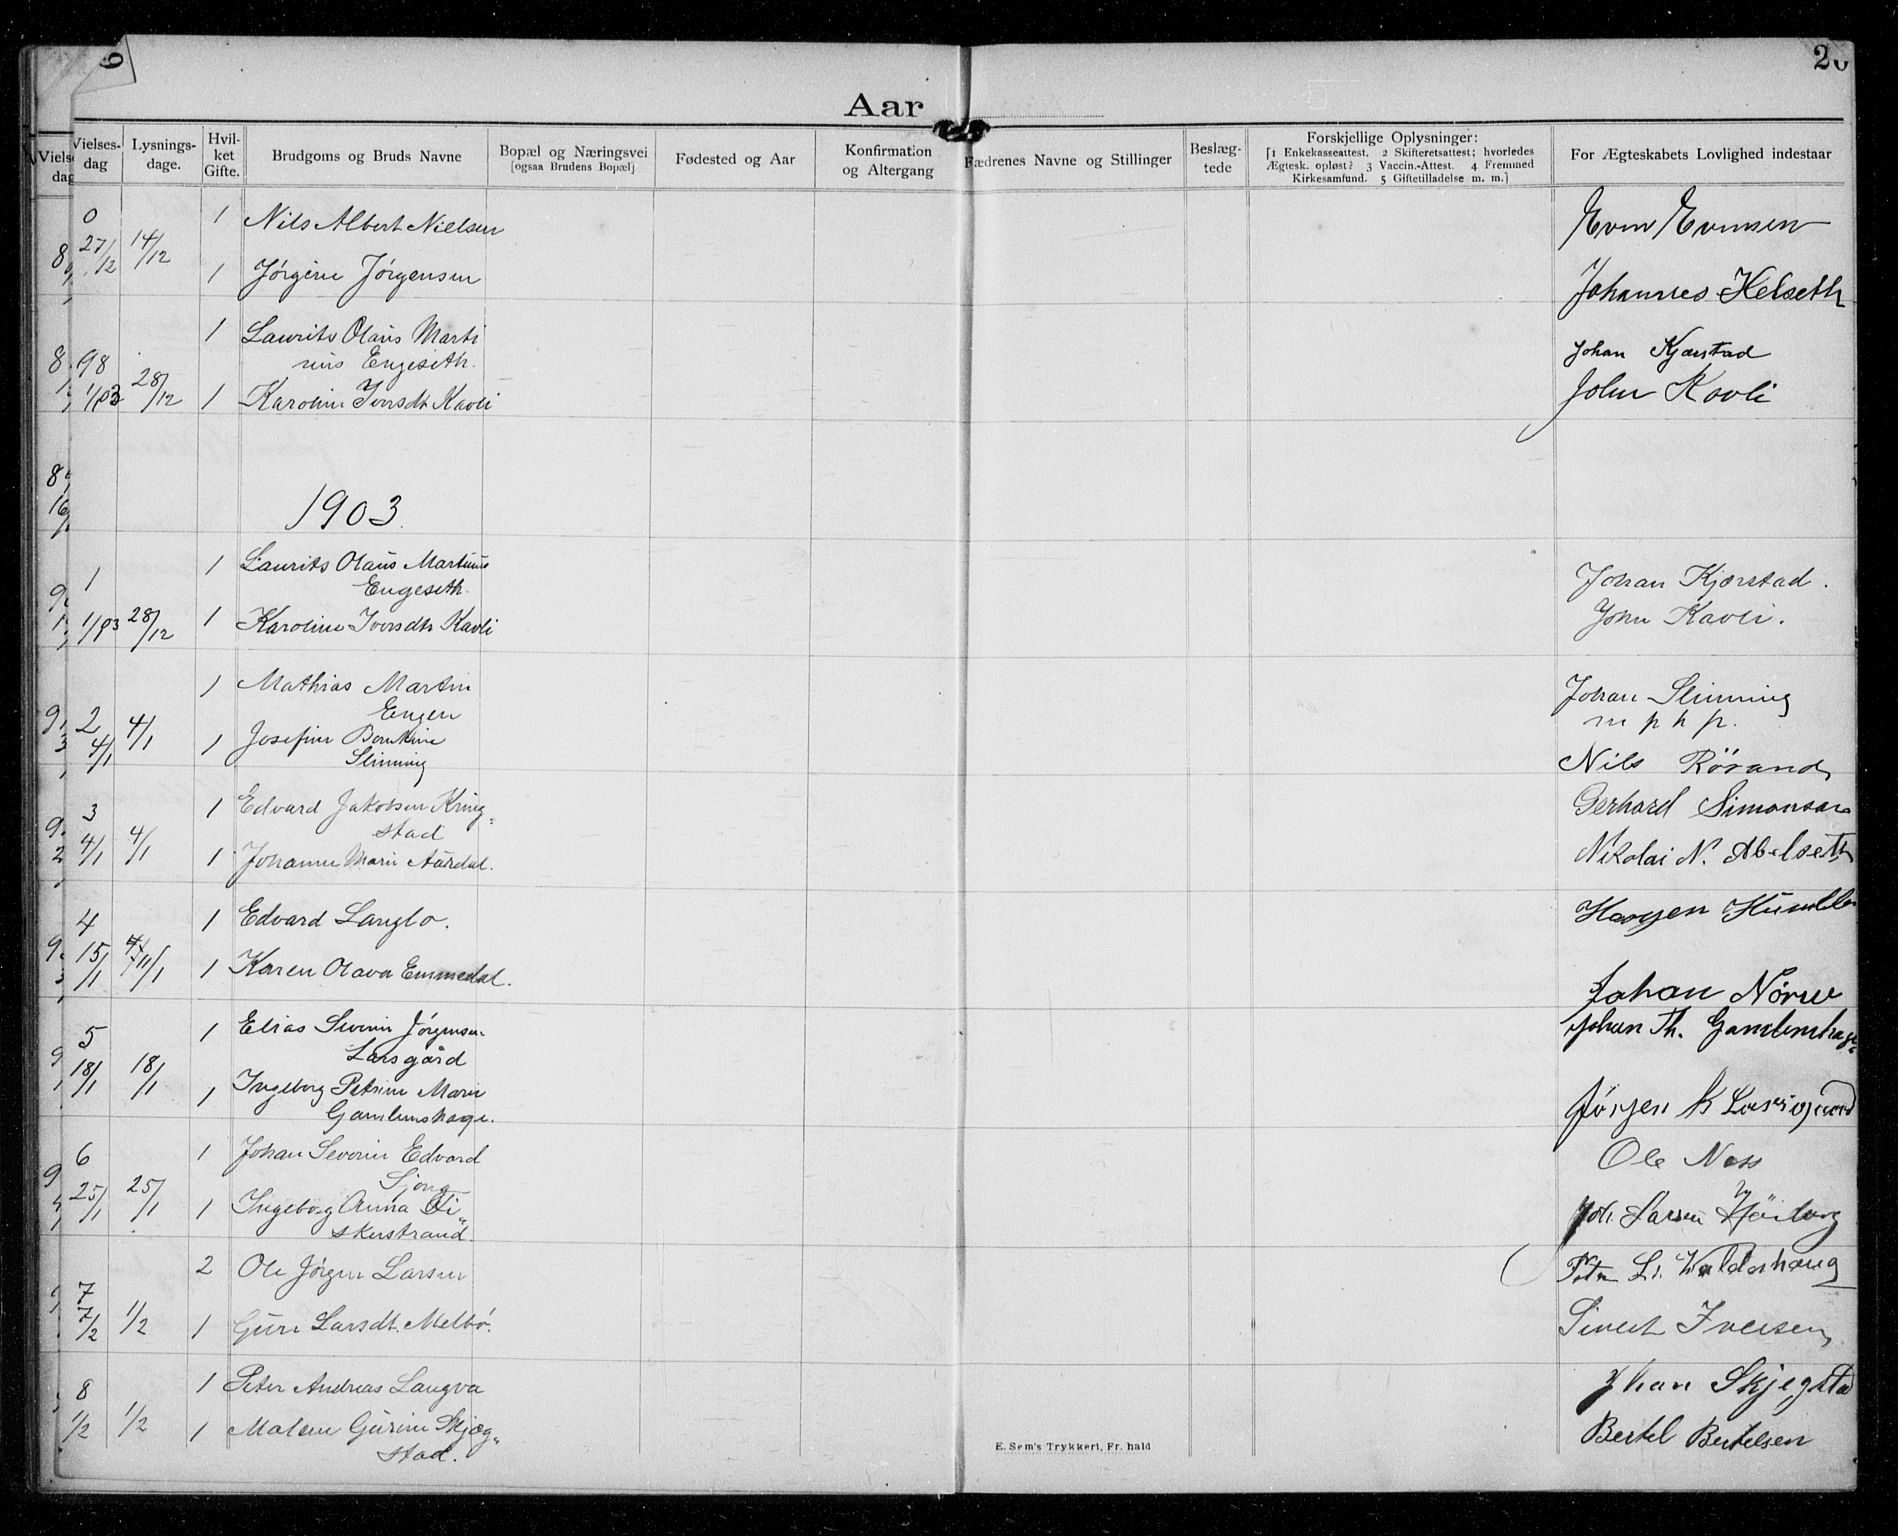 20
Aar
Vielses-dag
Lysnings-dage.
Hvil-ket Gifte.
Brudgoms og Bruds Navne
Bopæl og Næringsvei
[ogsaa Brudens Bopæl]
Fødested og Aar
Konfirmation og Altergang
Fædrenes Navne og Stillinger
Beslæg-tede
Forskjellige Oplysninger:
[1 Enkekasseattest. 2 Skifteretsattest; hvorledes
Ægtesk. opløst? 3 Vaccin.-Attest. 4 Fremmed
Kirkesamfund. 5 Giftetilladelse m. m.]
For Ægteskabets Lovlighed indestaar
0 1 Nils Albert Nielsen
27/12 14/12
1 Jörgine Jörgensen
Johannes Helseth
1 Laurits Olaus Marti
nius Engeseth.
Johan Kjærstad
98
1/03 28/12 1 Karoline Iversdt Kavli
John Kavli
1903.
1 Laurits Olaus Martinus
1 Engeseth.
Johan Kjærstad.
1/03 28/12 1 Karoline Iversdtr Kavli
John Kavli.
1 Mathias Martin
Engen
Johan Slinning
m p h p.
2 4/1 4/1 1 Josefine Berntine
Slinning
Nils Rörand
3 1 Edvard Jakobsen Kring-
stad
Gerhard Simonsen
4/1 4/1 1 Johanne Marie Aurdal.
Nikolai N. Abelseth
4 1 Edvard Langlo.
15/1 11/1 1 Karen Olava Emmedal.
Johan Nörve
5 1 Elias Severin Jörgensen
Larsgård
Johan Th. Gamlemshage
18/1 18/1 1 Ingeborg Petrine Marie
Gamlemshage.
Jörgen K Larsgaard
6 1 Johan Severin Edvard
Sjong
Ole Næss
25/1 25/1 1 Ingeborg Anna Fi-
skerstrand.
Joh. Larsen
7 2 Ole Jörgen Larsen
7/2 1/2 1 Guri Larsdt. Melbö.
Sivert Iversen
8 1 Peter Andreas Langva
Johan Skjegstad
1/2 1/2 1 Malene Gurine Skjæg-
stad.
Bertel Bertelsen
E. Sem's Trykkeri, Fr. hald